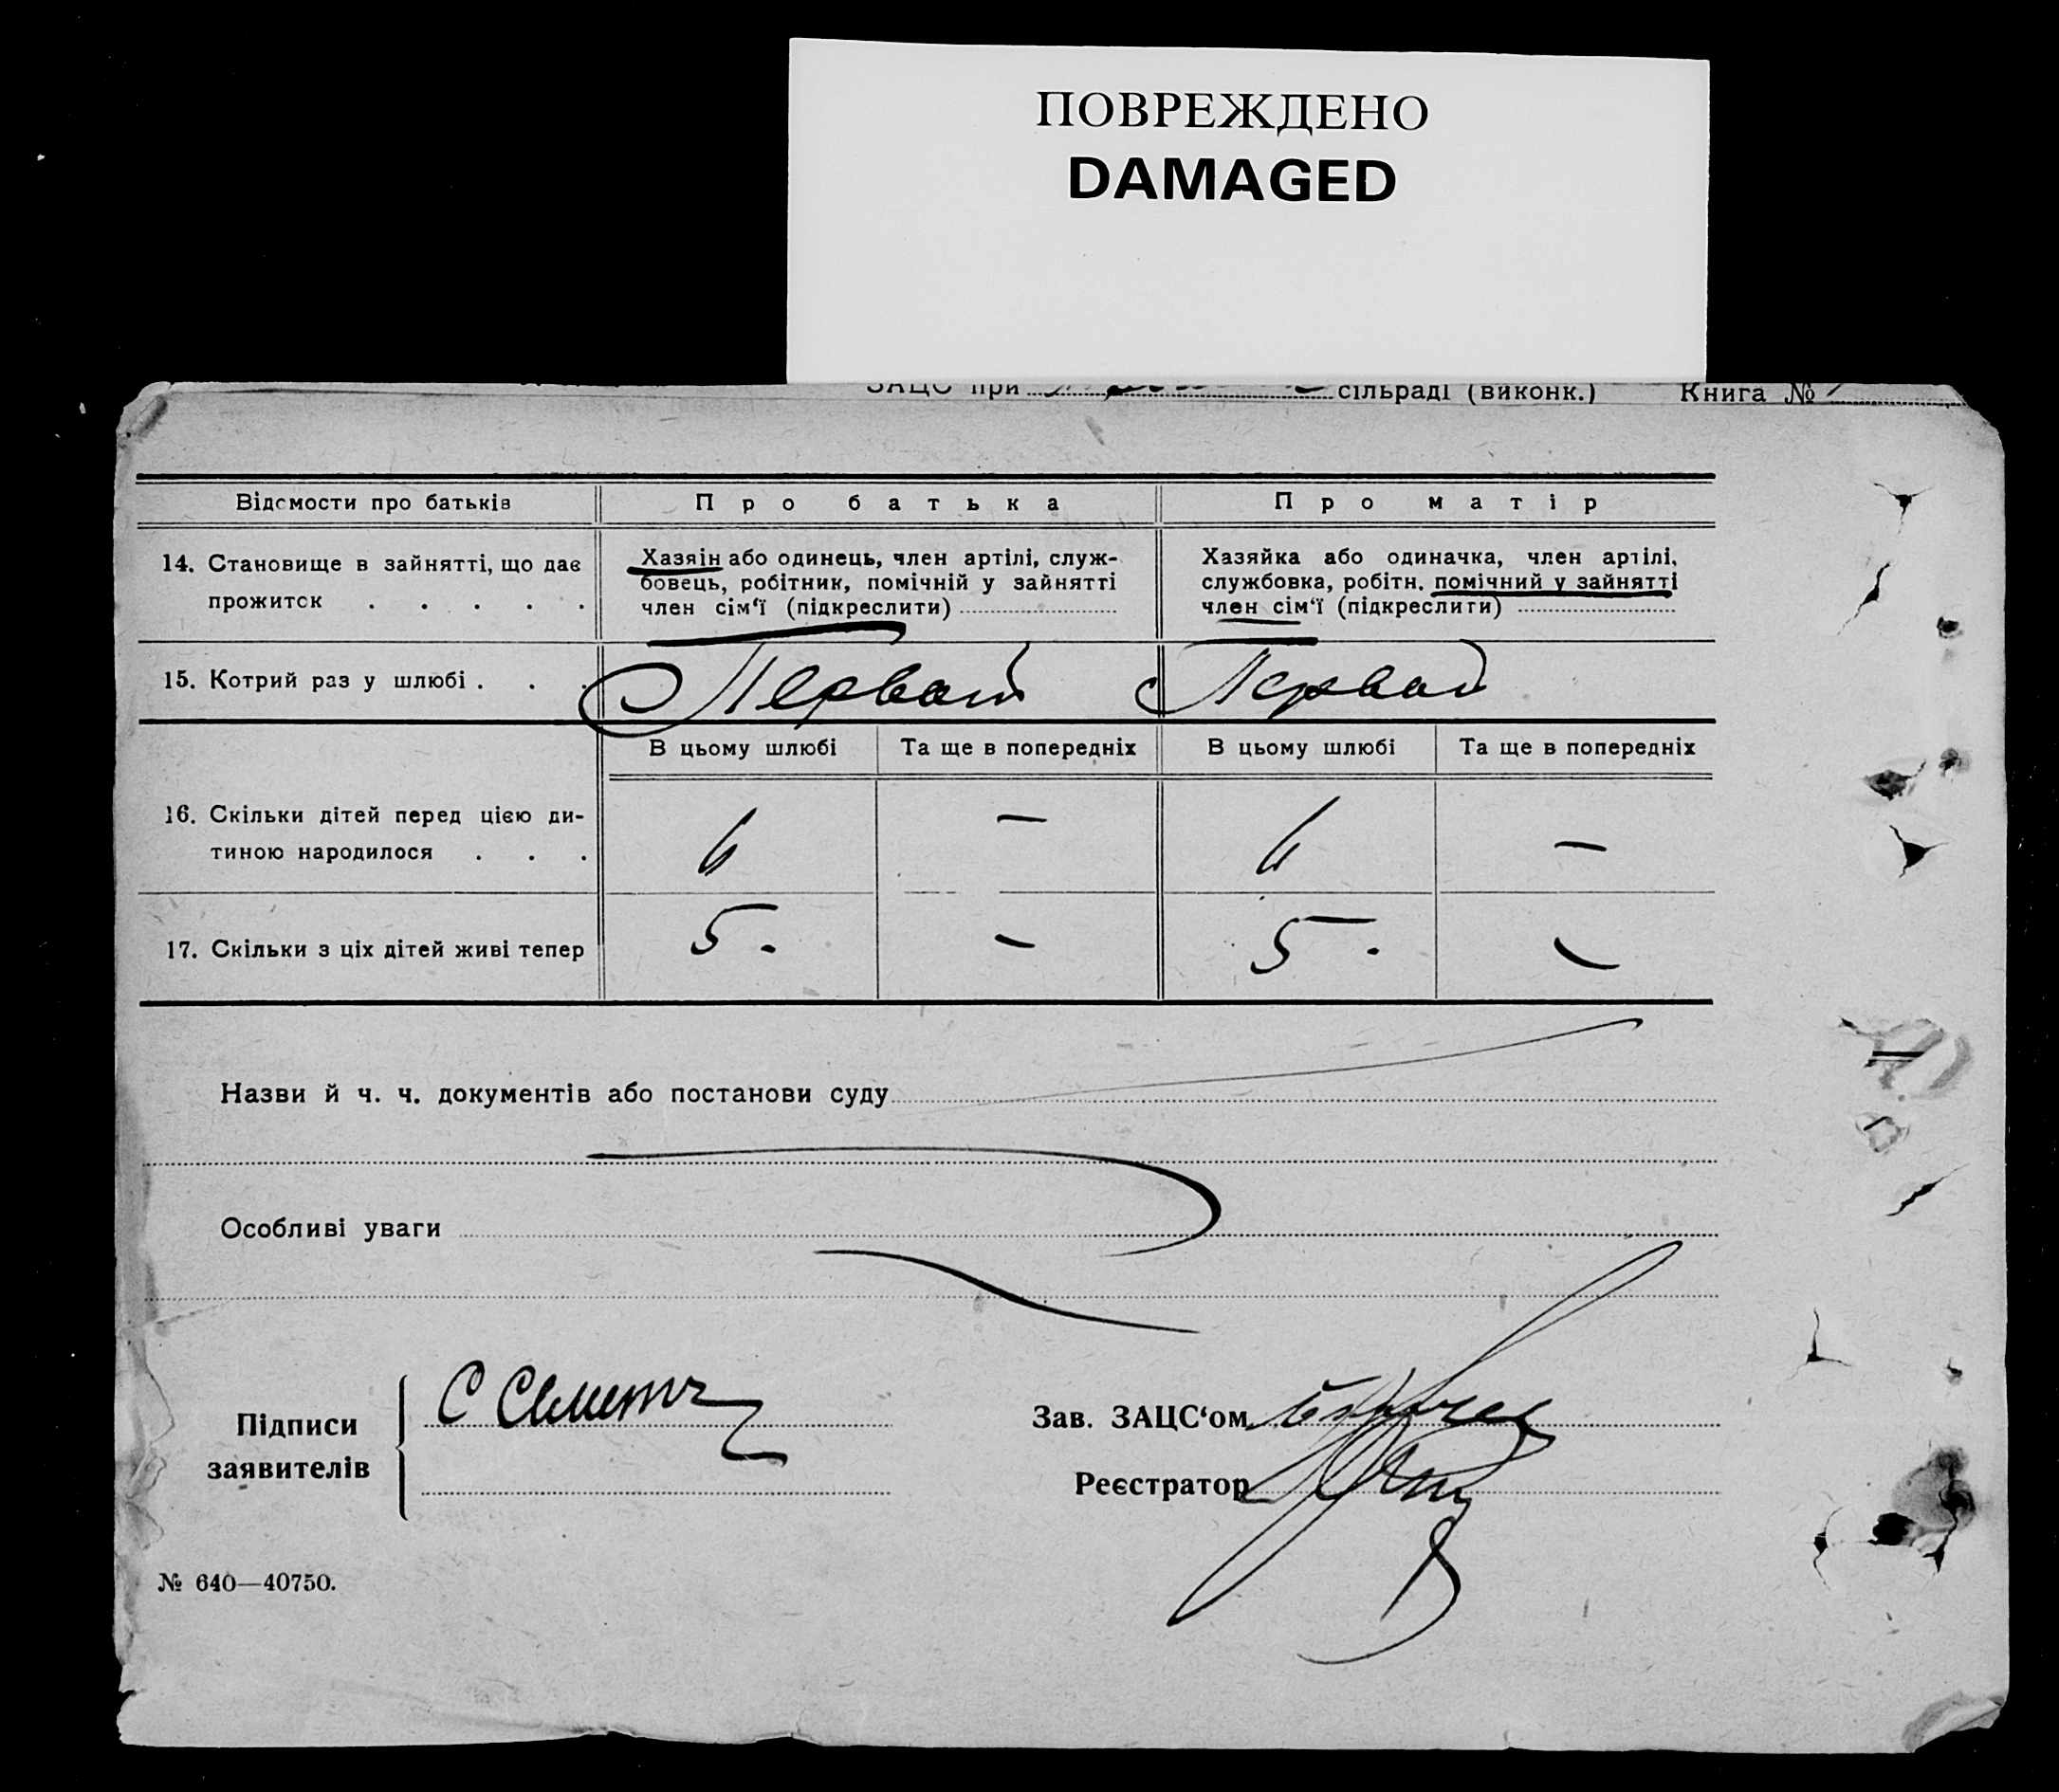 ПОВРЕЖДЕНО
DAMAGED
ЗАЦС при сільраді (виконк.) Книга №
Відомости про батьків Про батька Про матір
14. Становище в зайнятті, що дає прожиток . . . . .
Хазяін або одинець, член артілі, служ-
бовець, робітник, помічній у зайнятті
член сім‘ї (підкреслити)
Хазяйка або одиначка, член артілі,
службовка, робітн. помічний у зайнятті
член сім‘ї (підкреслити)
15. Котрий раз у шлюбі . . . Первый Первый
В цьому шлюбі Та ще в попередніх В цьому шлюбі Та ще в попередніх
16. Скільки дітей перед цією ди-
тиною народилося . . . 6 — 6 —
17. Скільки з ціх дітей живі тепер 5. — 5. —
Назви й ч. ч. документів або постанови суду
Особливі уваги
Підписи
заявителів
Зав. ЗАЦС‘ом
Реєстратор
№ 640—40750.